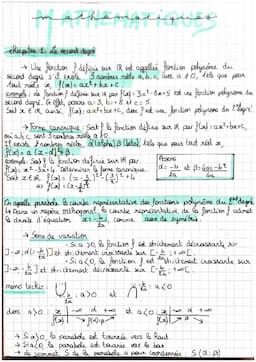 mathématiques
chapitre 1: Le second degré
→ Une fonction f définie sur ℝ est appellée fonction polynôme du
second degré s'il existe 3 nombres réels a, b, c, avec a ≠ 0, tels que pour
tout réels x, f(x) = ax²+bx+c.
exemple: la fonction f définie sur ℝ par f(x) = 3x²-8x+5 est une fonction polynôme du
second degré. En effet, posons a = 3, b = -8 et c = 5.
Soit x ∈ ℝ, f(x) = ax²+bx+c, donc f est une fonction polynôme du 2nd degré.
→ Forme canonique: Soit f la fonction définie sur ℝ par f(x) = ax²+bx+c,
où a, b, c sont 3 nombres réels, a ≠ 0.
Il existe 2 nombres réels, α (alpha) β (bêta), tels que pour tout réel x,
f(x) = a(x-α)²+β.
exemple: Soit f la fonction définie sur ℝ par
Posons
α = -b/2a et β =
Déterminer la forme canonique.
Soit x ∈ ℝ, f(x) =
On appelle parabole la courbe représentative des fonctions polynôme du 2nd degré.
↳ Dans un repère orthogonal, la courbe représentative de la fonction f admet
la droite d'équation x = -b/2a comme axe de symétrie.
→ Sens de variation
- Si a > 0, la fonction f est strictement décroissante sur
et strictement croissante sur
- Si a < 0, la fonction f est strictement croissante sur
et strictement décroissante sur
memo technic:
a > 0 et a < 0
donc a > 0
x -∞ α +∞
f(x)
et a < 0
x -∞ α +∞
f(x)
→ Si a > 0, la parabole est tournée vers le haut
→ Si a < 0, la parabole est tournée vers le bas
→ Le sommet S de la parabole a pour coordonnées S (α; β)